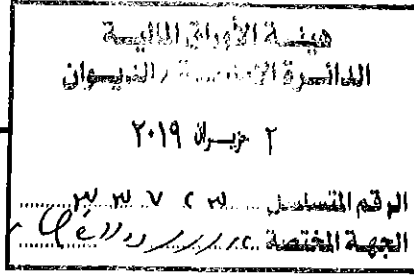 هيئة الأوراق المالية
الدائرة الإدارية / الديوان
٢ حزيران ٢٠١٩
الرقم المتسلسل ٣٢٧٣٣
الجهة المختصة